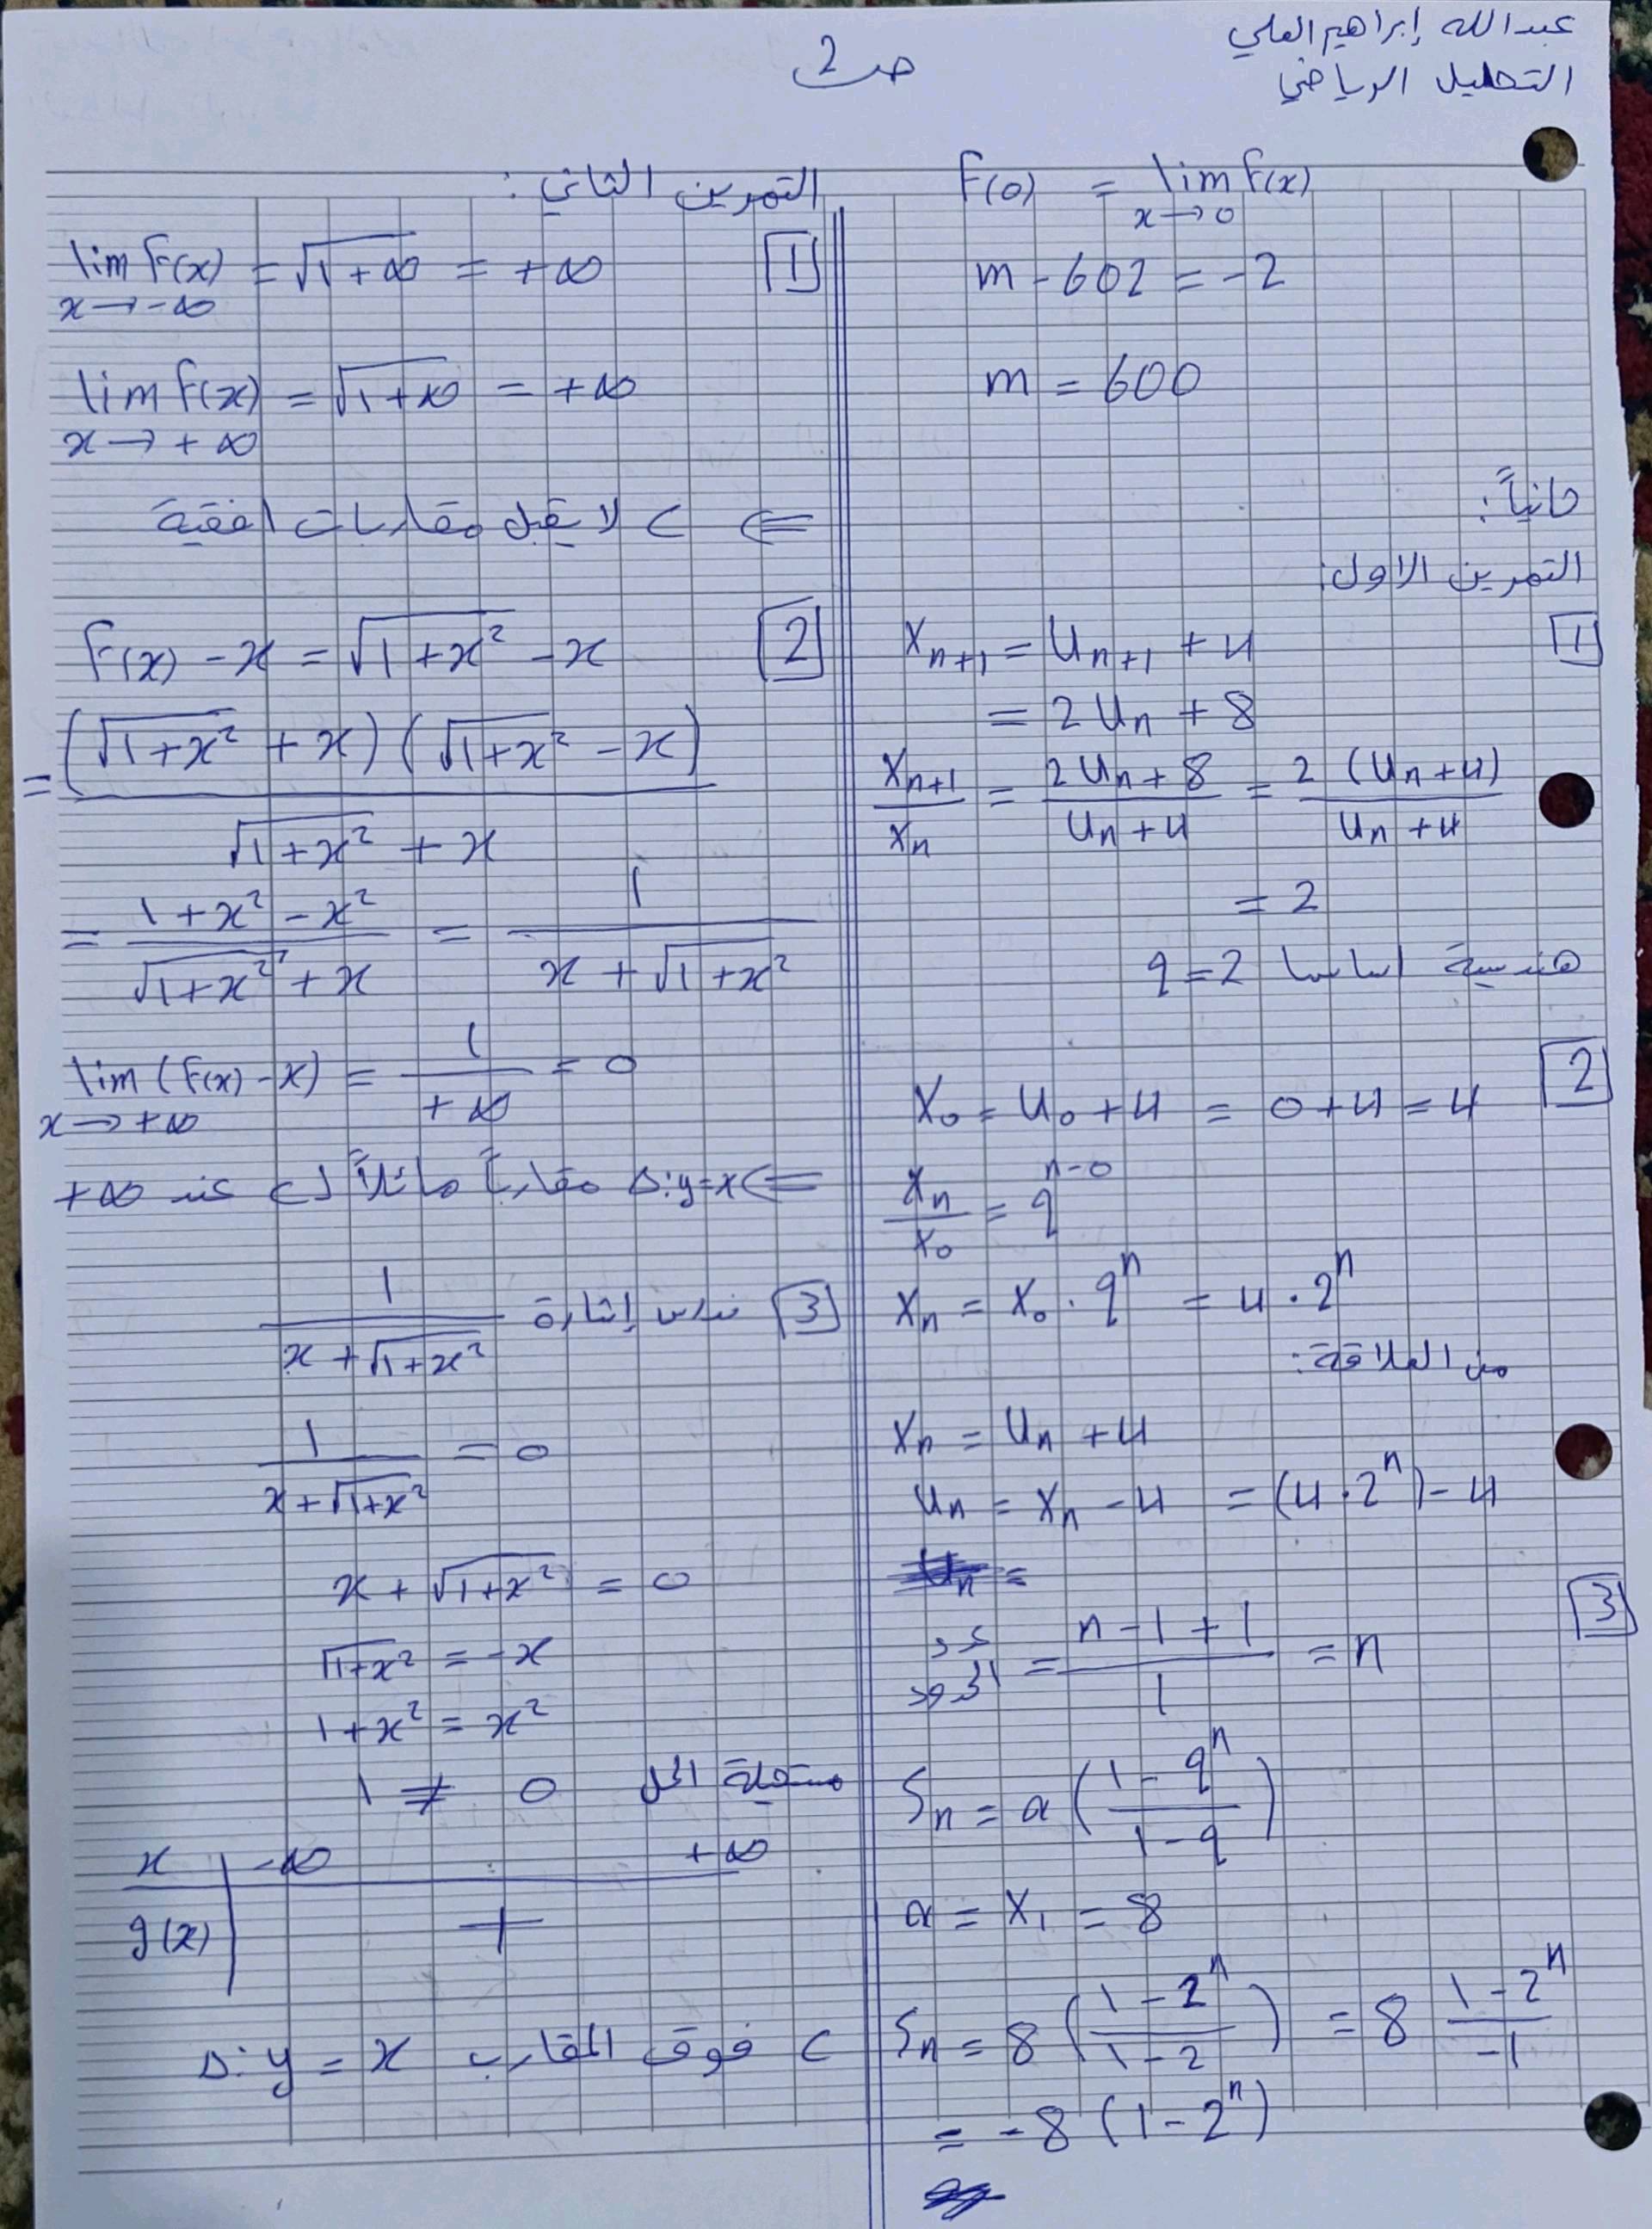 عبد الله إبراهيم العلي
التحليل الرياضي
ص 2
F(0) = lim F(x)
x → 0
m - 602 = -2
m = 600
ثانياً:
التمرين الاول:
1
X_{n+1} = U_{n+1} + 4
= 2 U_n + 8
X_{n+1}/X_n = (2 U_n + 8)/(U_n + 4) = 2 (U_n + 4)/(U_n + 4)
= 2
هندسية اساسها q = 2
2
X_0 = U_0 + 4 = 0 + 4 = 4
X_n/X_0 = q^{n-0}
X_n = X_0 . q^n = 4 . 2^n
من العلاقة:
X_n = U_n + 4
U_n = X_n - 4 = (4 . 2^n) - 4
3
عدد الحدود = (n - 1 + 1)/1 = n
S_n = a ((1 - q^n)/(1 - q))
a = X_1 = 8
S_n = 8 ((1 - 2^n)/(1 - 2)) = 8 (1 - 2^n)/(-1)
= -8 (1 - 2^n)
التمرين الثاني:
1
lim F(x) = √(1 + ∞) = +∞
x → -∞
lim F(x) = √(1 + ∞) = +∞
x → +∞
⇐ C لا يقبل مقاربات افقية
2
F(x) - x = √(1 + x²) - x
= (√(1 + x²) + x)(√(1 + x²) - x)/(√(1 + x²) + x)
= (1 + x² - x²)/(√(1 + x²) + x) = 1/(x + √(1 + x²))
lim (F(x) - x) = 1/(+∞) = 0
x → +∞
⇐ Δ: y = x مقارباً مائلاً لـ C عند +∞
3 ندرس إشارة 1/(x + √(1 + x²))
1/(x + √(1 + x²)) = 0
x + √(1 + x²) = 0
√(1 + x²) = -x
1 + x² = x²
1 ≠ 0 مستحيلة الحل
x | -∞ +∞
g(x) | +
C فوق المقارب Δ: y = x